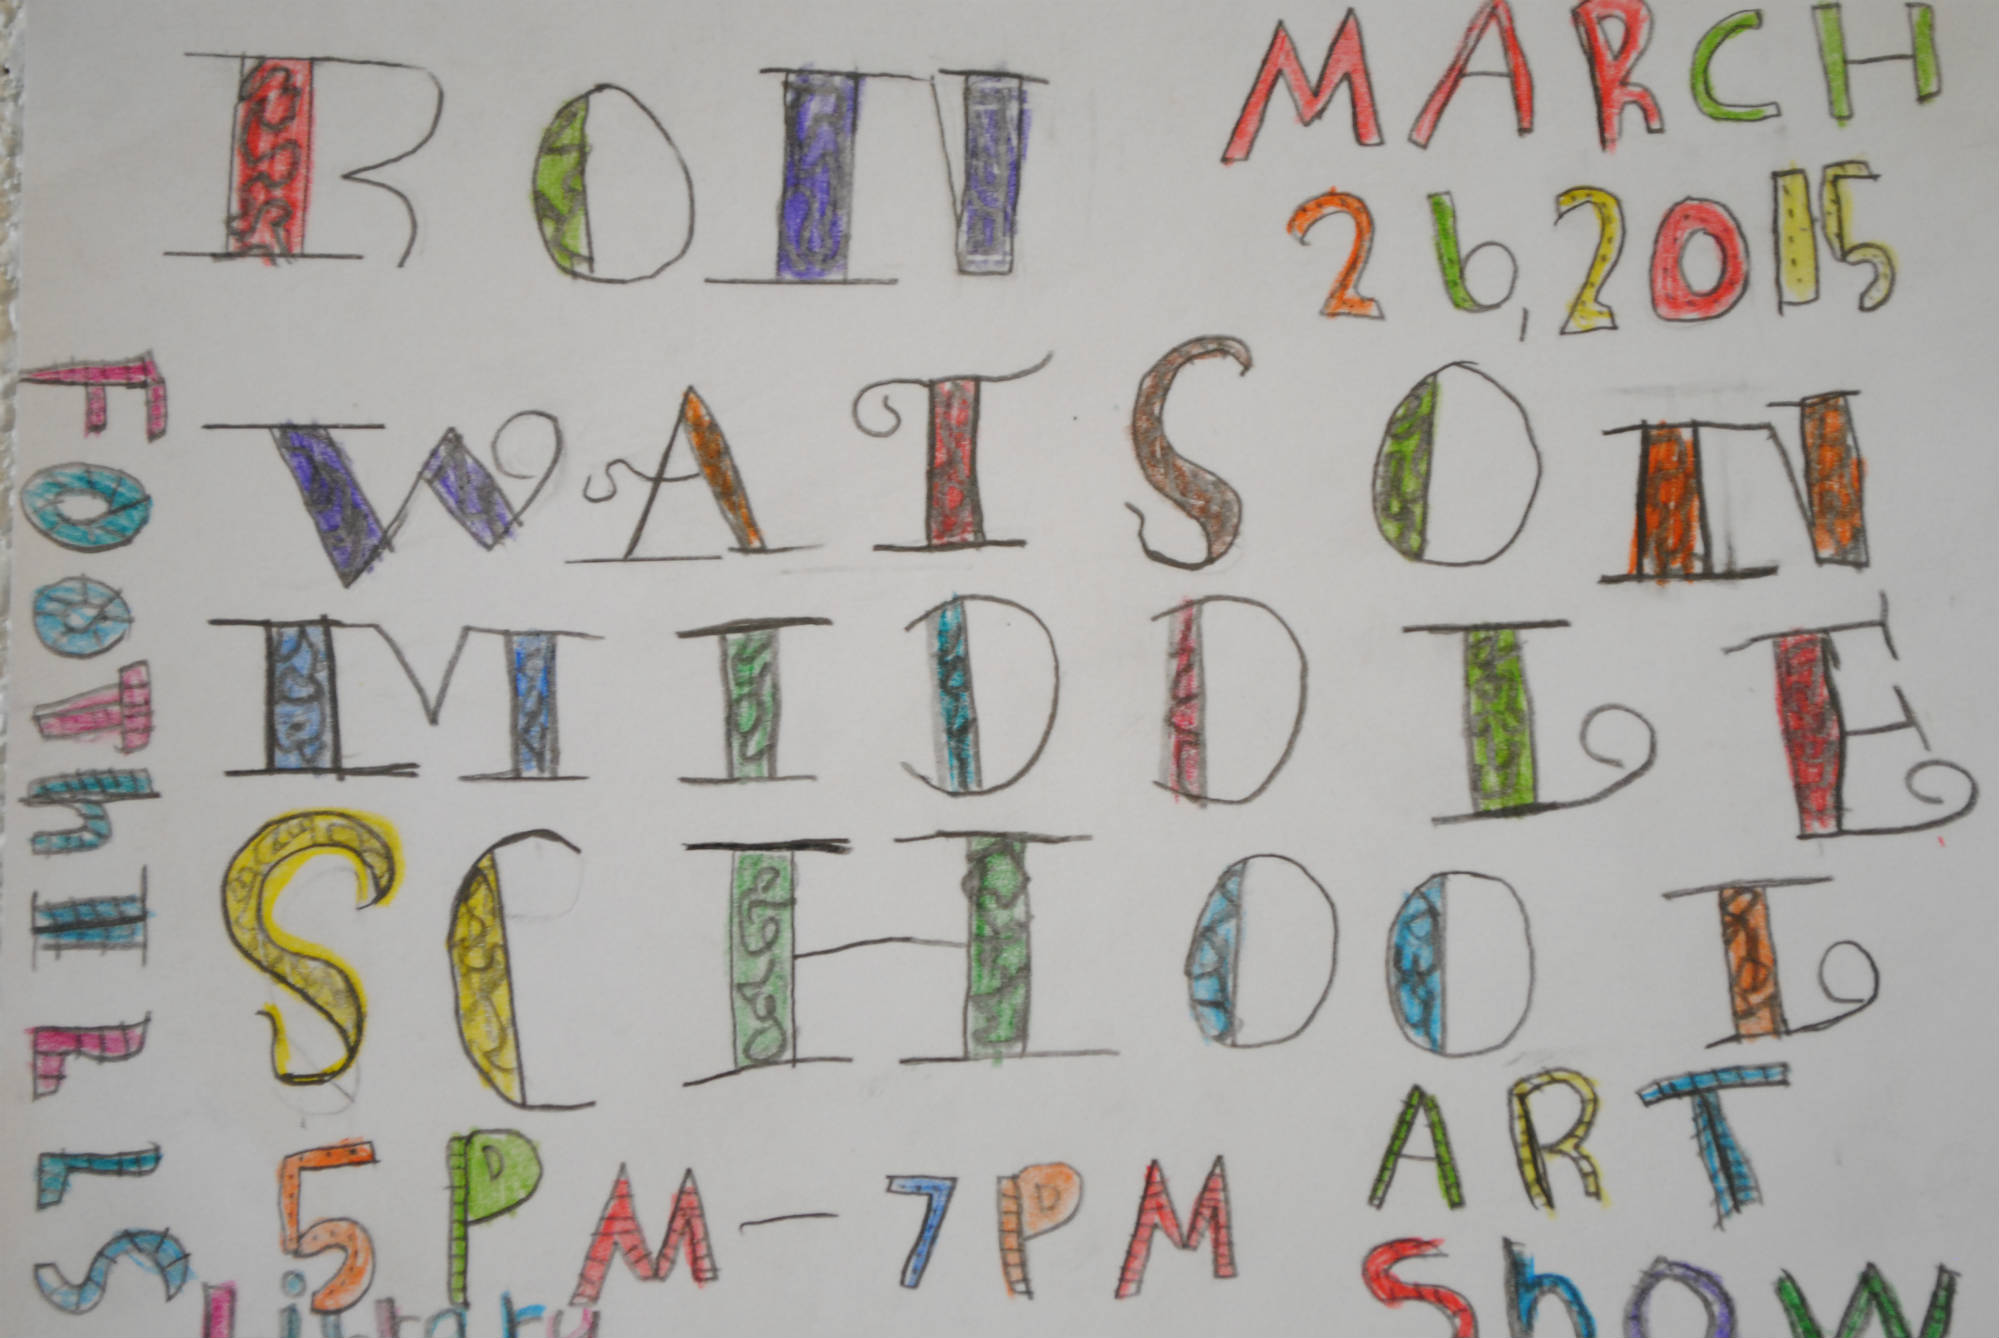 RON
MARCH
26, 2015
WATSON
MIDDLE
SCHOOL
FOOThILLS
5PM — 7PM
ART
ShOW
Library